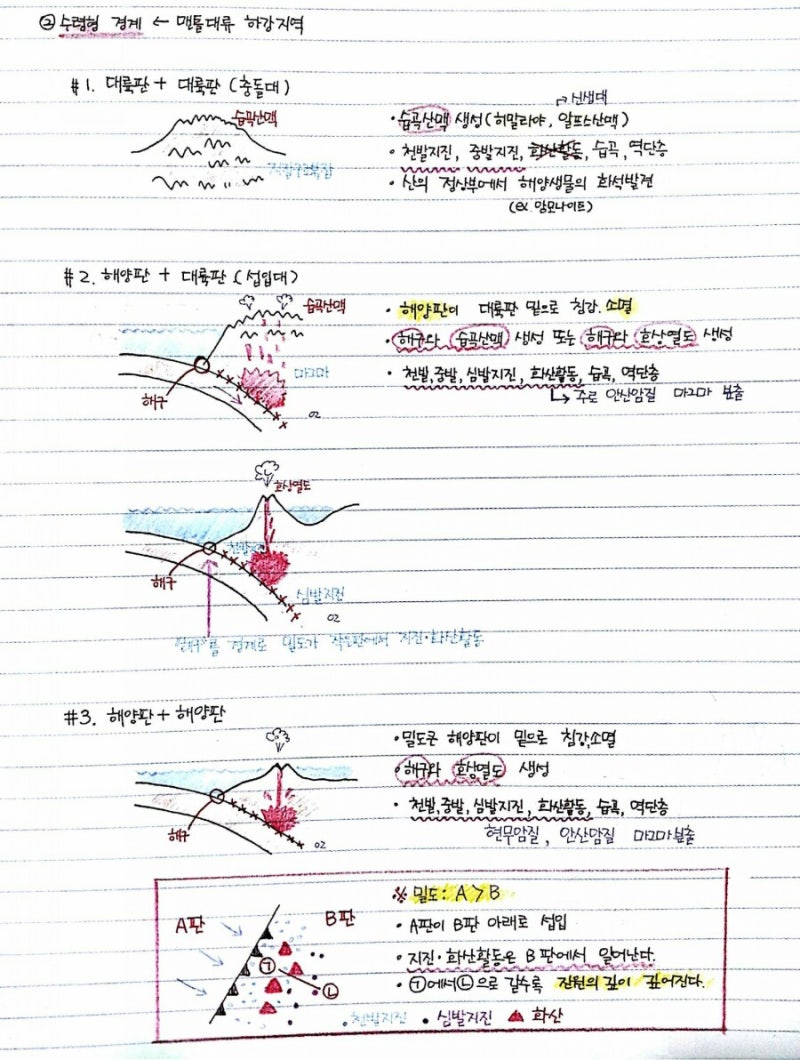 ② 수렴형 경계 ← 맨틀대류 하강지역
#1. 대륙판 + 대륙판 (충돌대)
습곡산맥
→ 신생대
• 습곡산맥 생성 (히말라야, 알프스산맥)
• 천발지진, 중발지진, 화산활동, 습곡, 역단층
• 산의 정상부에서 해양생물의 화석발견
(ex. 암모나이트)
#2. 해양판 + 대륙판 (섭입대)
습곡산맥
마그마
해구
• 해양판이 대륙판 밑으로 침강. 소멸
• 해구와 습곡산맥 생성 또는 해구와 호상열도 생성
• 천발, 중발, 심발지진, 화산활동, 습곡, 역단층
↳ 주로 안산암질 마그마 분출
호상열도
해구
심발지진
해구를 경계로 밀도가 작은판에서 지진·화산활동
#3. 해양판 + 해양판
해구
• 밀도큰 해양판이 밑으로 침강, 소멸
• 해구와 호상열도 생성
• 천발, 중발, 심발지진, 화산활동, 습곡, 역단층
현무암질, 안산암질 마그마 분출
A판
B판
㉠
㉡
※ 밀도: A > B
• A판이 B판 아래로 섭입
• 지진·화산활동은 B판에서 일어난다.
• ㉠에서 ㉡으로 갈수록 진원의 깊이 깊어진다.
• 천발지진 • 심발지진 ▲ 화산